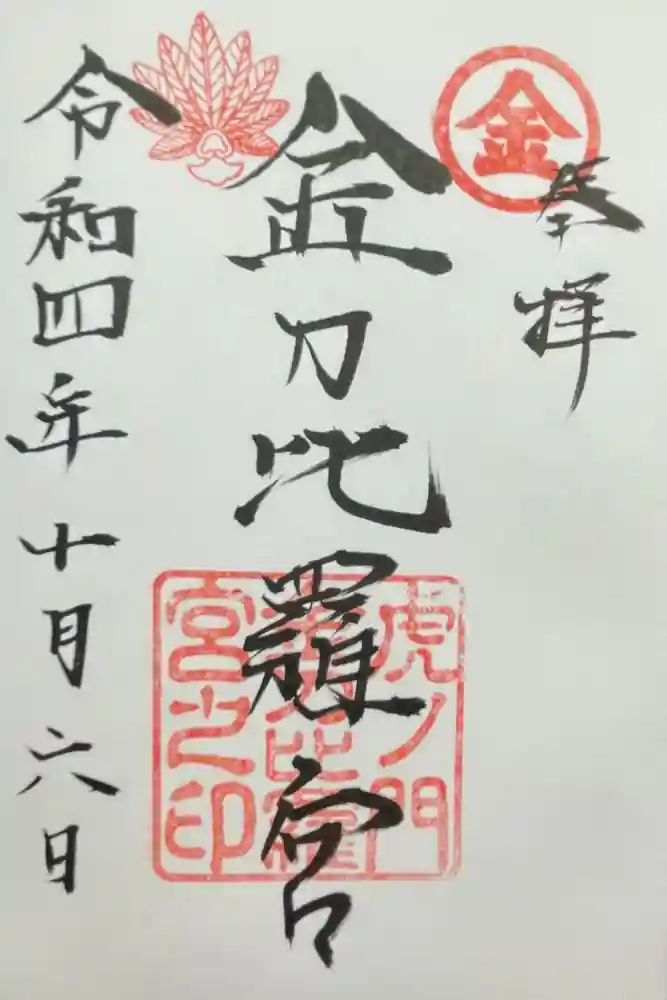 金
奉拝
金刀比羅宮
虎ノ門
金刀比羅
宮之印
令和四年十月六日